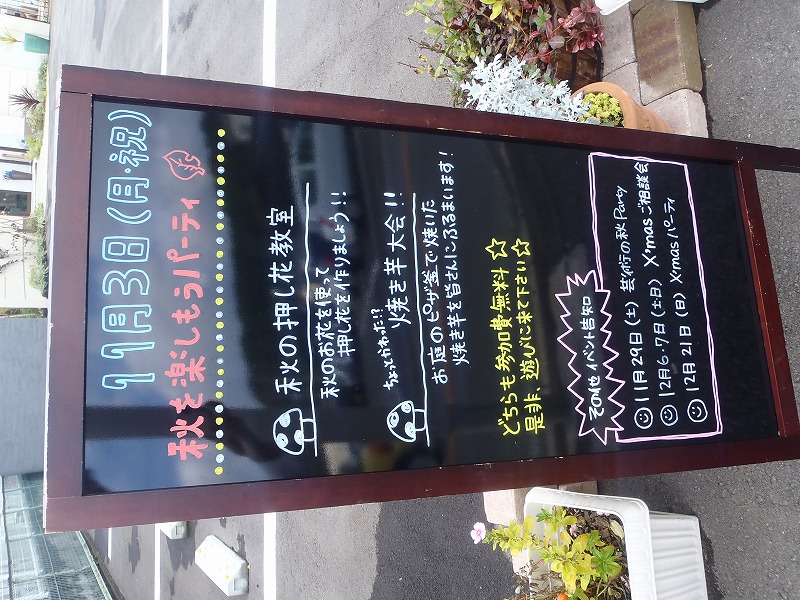 11月3日(月・祝)
秋を楽しもうパーティ
秋の押し花教室
秋のお花を使って
押し花を作りましょう!!
ちょっとかわった!?
焼き芋大会!!
お庭のピザ釜で焼いた
焼き芋を皆さんにふるまいます!
どちらも参加費無料☆
是非、遊びに来て下さい☆
その他イベント告知
11月29日(土) 芸術の秋Party
12月6・7日(土日) X'masご相談会
12月21日(日) X'masパーティ